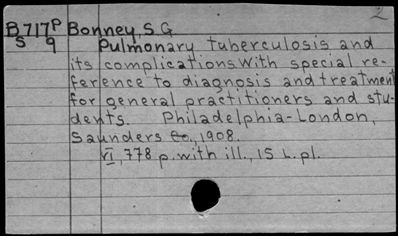 2
B717P Bonney, S. G
S 9 Pulmonary tuberculosis and
its complications with special re-
ference to diagnosis and treatment
for general practitioners and stu-
dents. Philadelphia-London,
Saunders Co., 1908.
VI, 778 p. with ill., 15 L. pl.